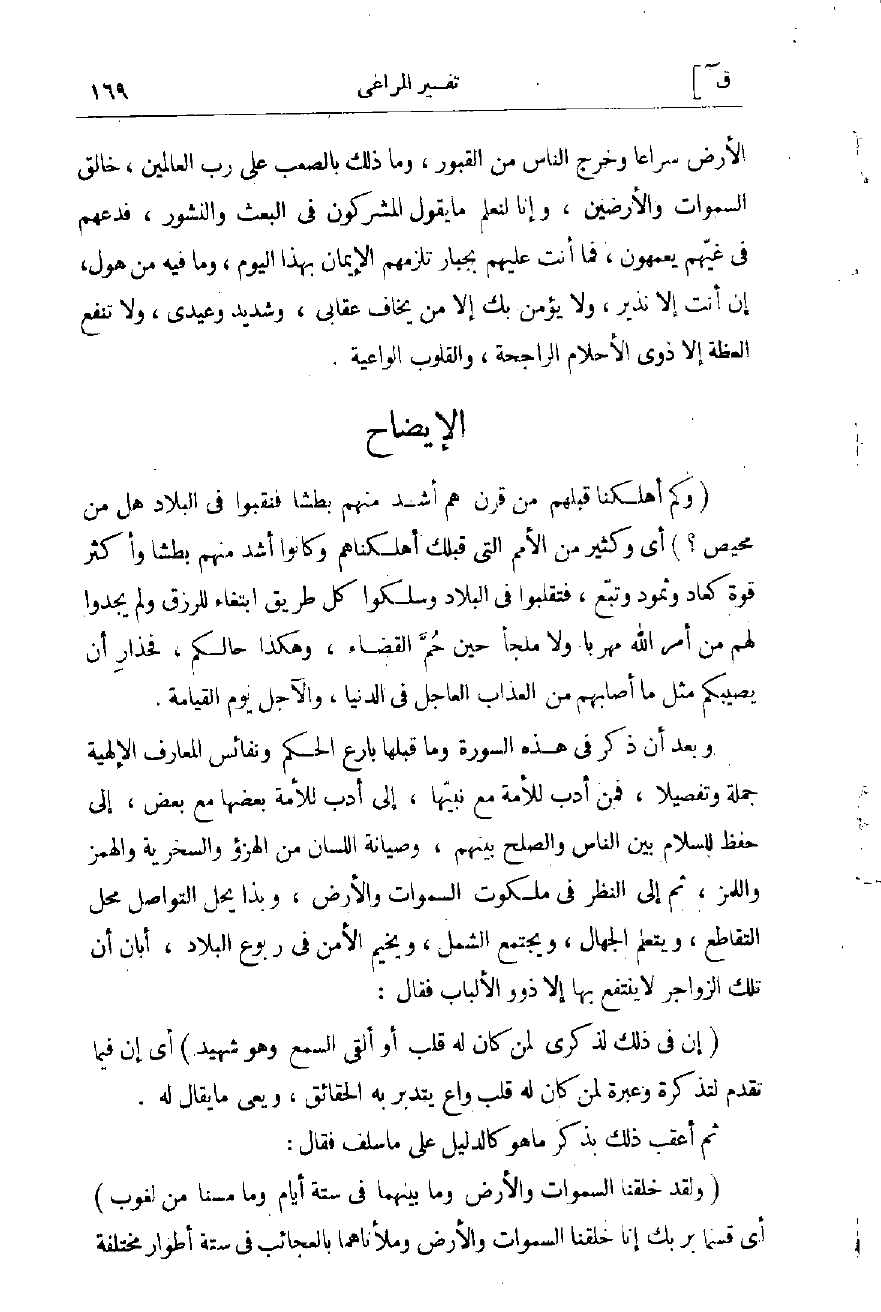 ق ]
تفسير المراغى
١٦٩
الأرض سراعا وخرج الناس من القبور ، وما ذلك بالصعب على رب العالمين ، خالق
السموات والأرضين ، وإنا لنعلم مايقول المشركون فى البعث والنشور ، فدعهم
فى غيّهم يعمهون ، فما أنت عليهم بجبار تلزمهم الإيمان بهذا اليوم ، وما فيه من هول،
إن أنت إلا نذير ، ولا يؤمن بك إلا من يخاف عقابى ، وشديد وعيدى ، ولا تنفع
العظة إلا ذوى الأحلام الراجحة ، والقلوب الواعية .
الإيضاح
( وكم أهلكنا قبلهم من قرن هم أشد منهم بطشا فنقبوا فى البلاد هل من
محيص ؟ ) أى وكثير من الأمم التى قبلك أهلكناهم وكانوا أشد منهم بطشا وأكثر
قوة كعاد وثمود وتبّع ، فتقلبوا فى البلاد وسلكوا كل طريق ابتغاء للرزق ولم يجدوا
لهم من أمر الله مهربا ولا ملجأ حين حُمَّ القضاء ، وهكذا حالكم ، فحذارِ أن
يصيبكم مثل ما أصابهم من العذاب العاجل فى الدنيا ، والآجل يوم القيامة .
وبعد أن ذكر فى هذه السورة وما قبلها بارع الحكم ونفائس المعارف الإلهية
جملة وتفصيلا ، فمن أدب للأمة مع نبيّها ، إلى أدب للأمة بعضها مع بعض ، إلى
حفظ للسلام بين الناس والصلح بينهم ، وصيانة اللسان من الهزؤ والسخرية والهمز
واللمز ، ثم إلى النظر فى ملكوت السموات والأرض ، وبذا يحل التواصل محل
التقاطع ، ويتعلم الجهال ، ويجتمع الشمل ، ويخيم الأمن فى ربوع البلاد ، أبان أن
تلك الزواجر لاينتفع بها إلا ذوو الألباب فقال :
( إن فى ذلك لذكرى لمن كان له قلب أو ألقى السمع وهو شهيد ) أى إن فيما
تقدم لتذكرة وعبرة لمن كان له قلب واع يتدبر به الحقائق ، ويعى مايقال له .
ثم أعقب ذلك بذكر ماهو كالدليل على ماسلف فقال :
( ولقد خلقنا السموات والأرض وما بينهما فى ستة أيام وما مسنا من لغوب )
أى قسما بربك إنا خلقنا السموات والأرض وملأناهما بالعجائب فى ستة أطوار مختلفة